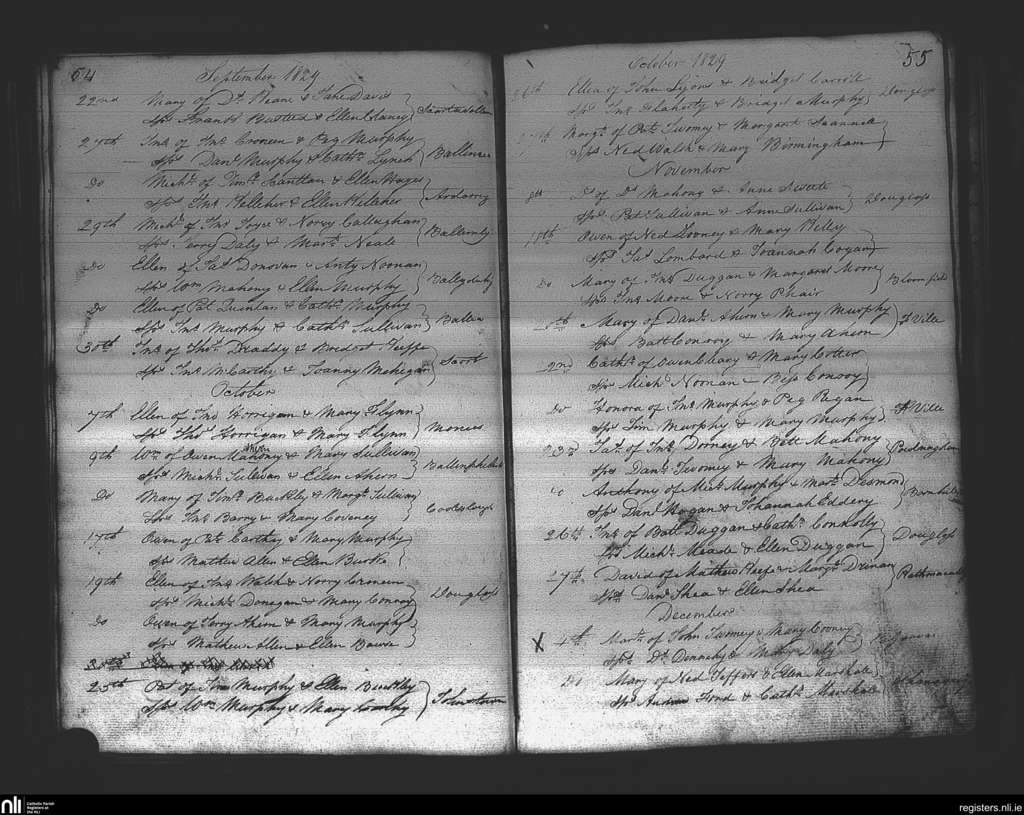 54
September 1829
22nd Mary of Dl. Keane & Jane Davis
Sps. Frands Busteed & Ellen Clancy
27th Jno. of Jno. Cronein & Peg Murphy
Sps. Danl. Murphy & Cathe. Lynch Ballincu
Do Michl. of Timy. Scantlan & Ellen Hayes
Sps. Jno. Kelleher & Ellen Kelleher Ardarrig
29th Michl. of Jno. Joyce & Norry Callaghan
Sps. Terry Daly & Mart. Neale
Do Ellen of Jas. Donovan & Anty Noonan
Sps. Wm. Mahony & Ellen Murphy
Do Ellen of Pat Quinlan & Cathe. Murphy
Sps. Jno. Murphy & Cathe. Sullivan Ballin
30th Jno. of Thos. Draddy & Bridget Keeffe
Sps. Jno. McCarthy & Joanny Mehigan
October
7th Ellen of Jno. Horrigan & Mary Flynn
Sps. Thos. Horrigan & Mary Flynn Monees
9th Wm. of Owen Mahony & Mary Sullivan
Sps. Michl. Sullivan & Ellen Ahern Ballinphelick
Do Mary of Timy. Buckley & Margt. Sullivan
Sps. Jno. Barry & Mary Coveney
17th Owen of Pat. Carthy & Mary Murphy
Sps. Mathew Allen & Ellen Burke
19th Ellen of Jno. Walsh & Norry Cronein
Sps. Michl. Donegan & Mary Conroy Douglass
Do Owen of Terry Ahern & Mary Murphy
Sps. Mathew Allen & Ellen
25th Pat of Tim Murphy & Ellen Buckley
Sps. Wm. Murphy & Mary Johnstown
55
October 1829
26th Ellen of John Lyons & Bridget Carroll
Sps. Jno. Flaherty & Bridget Murphy Douglass
Margt. of Pat. Twomy & Margaret
Sps. Ned Walsh & Mary Birmingham
November
8th D. of Dl. Mahony & Anne
Sps. Pat Sullivan & Anne Sullivan Douglass
Owen of Ned Looney & Mary Killy
Sps. Jas. Lombard & Joannah Cogan
Do Mary of Jno. Duggan & Margaret Moore
Sps. Jno. Moore & Norry Phair Bloomfield
Mary of Danl. Ahern & Mary Murphy
Sps. Batt Conroy & Mary Ahern F Ville
22nd Cathe. of Owen Cleary & Mary Cotter
Sps. Michl. Noonan & Bess Conroy
do Honora of Jno. Murphy & Peg Regan
Sps. Tim Murphy & Mary Murphy F Ville
23rd Jas. of Jno. Dorney & Bett Mahony
Sps. Danl. Twomey & Mary Mahony
do Anthony of Michl. Murphy & Mart. Desmond
Sps. Danl. Hogan & Johannah Eddery
26th Jno. of Batt Duggan & Cathe. Connolly
Sps. Michl. Meade & Ellen Duggan Douglass
27th David of Mathew Keefe & Margt. Drinan
Sps. Danl. Shea & Ellen Shea
December
X 4th Mart. of John Twomey & Mary Cooney
Sps. Dl. Dennehy & Mary Daly
Do Mary of Ned Jeffers & Ellen Marshall
Sps. Andrew Ford & Cathe. Marshall
nli Catholic Parish
Registers at
the NLI
registers.nli.ie